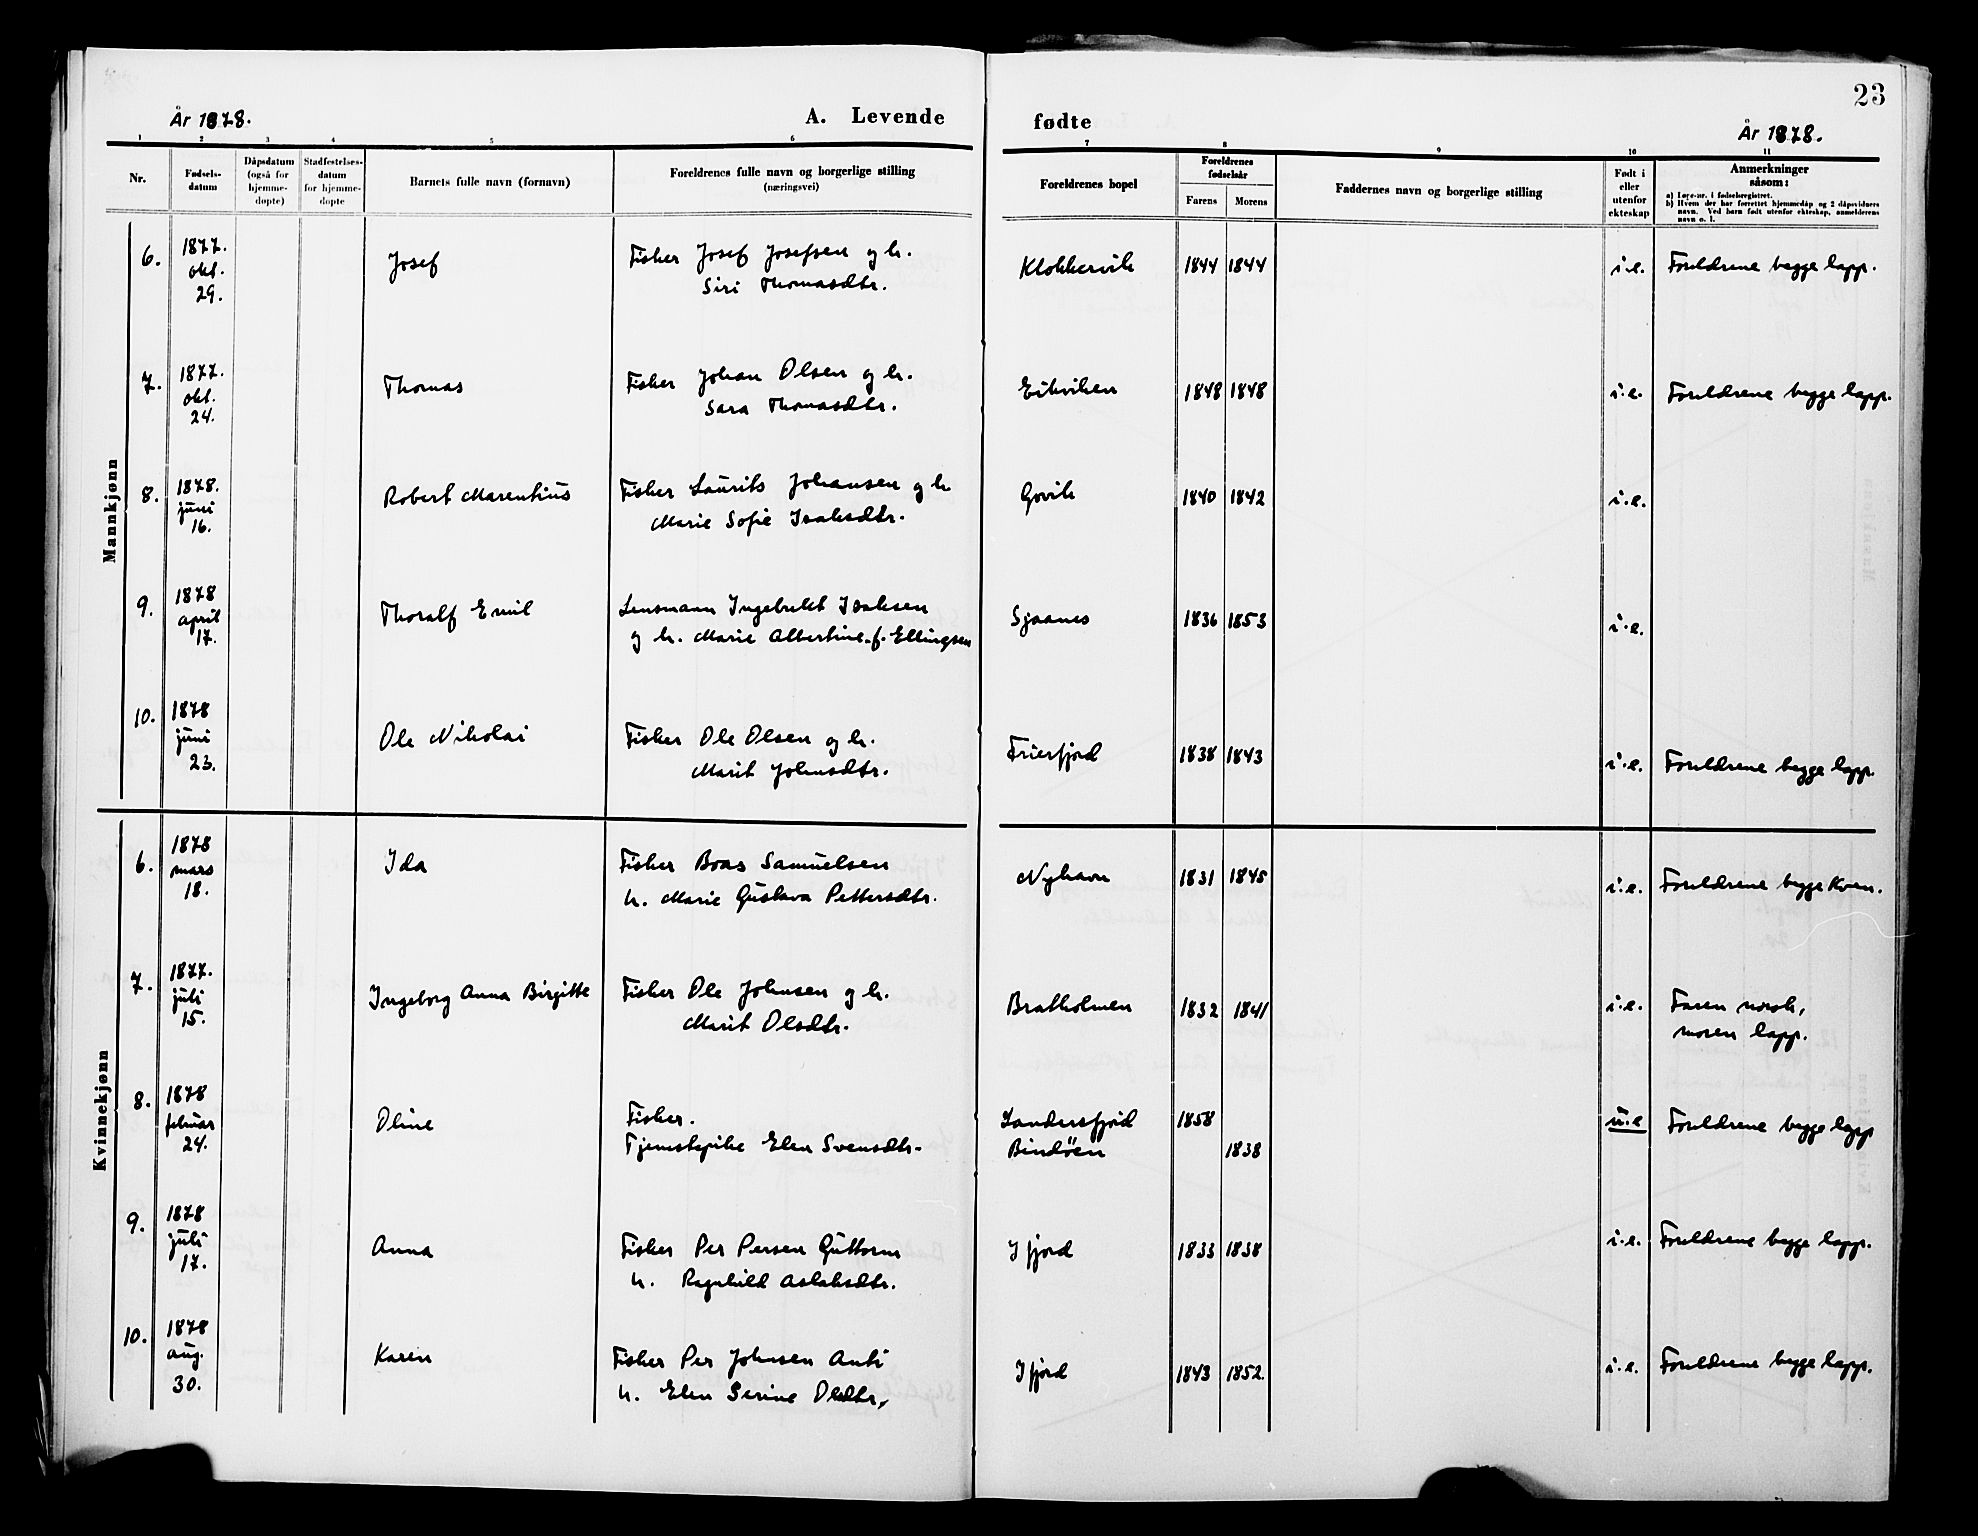 23
År 1878.
A. Levende
fødte
År 1878.
1 2 3 4 5 6 7 8 9 10 11
Nr.
Fødsels-
datum
Dåpsdatum
(også for
hjemme-
døpte)
Stadfestelses-
datum
for hjemme-
døpte
Barnets fulle navn (fornavn)
Foreldrenes fulle navn og borgerlige stilling
(næringsvei)
Foreldrenes bopel
Foreldrenes
fødselsår
Farens Morens
Faddernes navn og borgerlige stilling
Født i
eller
utenfor
ekteskap
Anmerkninger
såsom:
a) Løpe-nr. i fødselsregistret.
b) Hvem der har forrettet hjemmedåp og 2 dåpsvidners
navn. Ved barn født utenfor ekteskap, anmelderens
navn o. l.
Mannkjønn
6. 1877. okt. 29. Josef Fisker Josef Josefsen og h. Klokkervik 1844 1844 i.e. Foreldrene begge lapp.
Siri Thomasdtr.
7. 1877. okt. 24. Thomas Fisker Johan Olsen og h. Eikviken 1848 1848 i.e. Foreldrene begge lapp.
Sara Thomasdtr.
8. 1878. juni 16. Robert Marentius Fisker Laurits Johansen og h. Govik 1840 1842 i.e.
Marie Sofie Isaksdtr.
9. 1878 april 17. Thoralf Emil Lensmann Ingebrikt Isaksen Sjaanes 1836 1853 i.e.
og h. Marie Albertine f. Ellingsen
10. 1878 juni 23. Ole Nikolai Fisker Ole Olsen og h. Friesfjord 1838 1843 i.e. Foreldrene begge lapp.
Marit Johnsdtr.
Kvinnekjønn
6. 1878 mars 18. Ida Fisker Boas Samuelsen Nyhavn 1831 1845 i.e. Foreldrene begge Kven.
h. Marie Gustava Pettersdtr.
7. 1877. juli 15. Ingeborg Anna Birgitte Fisker Ole Johnsen og h. Bratholmen 1832 1841 i.e. Faren norsk,
Marit Olsdtr. moren lapp.
8. 1878 februar 24. Oline Fisker. Landersfjord 1858 u.e Foreldrene begge lapp
Tjenestepike Elen Svensdtr. Bindöen 1838
9. 1878 juli 17. Anna Fisker Per Persen Guttorm Ifjord 1833 1838 i.e. Foreldrene begge lapp.
h. Ragnhild Aslaksdtr.
10. 1878 aug. 30. Karen Fisker Per Johnsen Anti Ifjord 1843 1852. i.e. Foreldrene begge lapp.
h. Elen Serine Olsdtr.